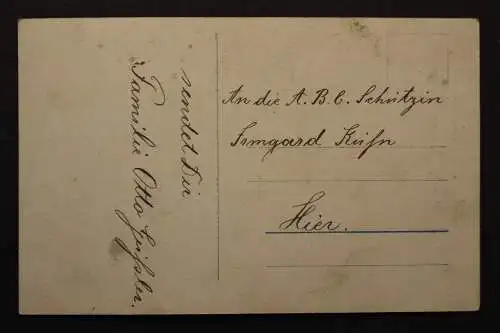 sendet Dir
Familie Otto
An die A. B. C. Schützin
Irmgard Kühn
Hier.